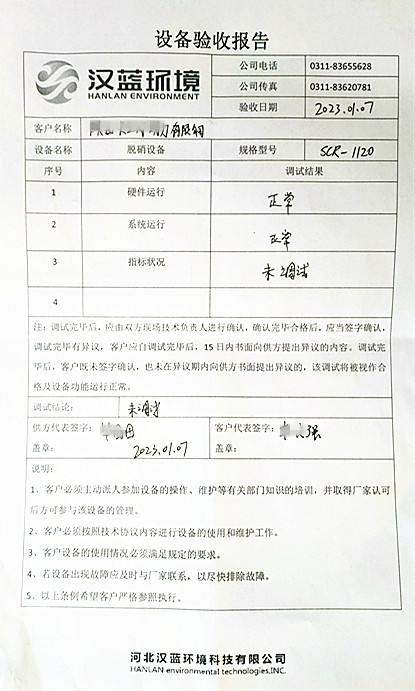 设备验收报告
汉蓝环境
HANLAN ENVIRONMENT
公司电话 0311-83655628
公司传真 0311-83620781
验收日期 2023.01.07
客户名称 有限公司
设备名称 脱硝设备 规格型号 SCR-1120
序号 内容 调试结果
1 硬件运行 正常
2 系统运行 正常
3 指标状况 未调试
4
注：调试完毕后，应由双方现场技术负责人进行确认，确认完毕合格后，应当签字确认，
调试完毕有异议，客户应自调试完毕后，15日内书面向供方提出异议的内容。调试完
毕后，客户既未签字确认，也未在异议期内向供方书面提出异议的，该调试将被视作合
格及设备功能运行正常。
调试结论： 未调试
供方代表签字： 客户代表签字： 强
盖章： 2023.01.07 盖章：
说明：
1、客户必须主动派人参加设备的操作、维护等有关部门知识的培训，并取得厂家认可
后方可参与该设备的管理。
2、客户必须按照技术协议内容进行设备的使用和维护工作。
3、客户设备的使用情况必须满足规定的要求。
4、若设备出现故障应及时与厂家联系，以尽快排除故障。
5、以上条例希望客户严格参照执行。
河北汉蓝环境科技有限公司
HANLAN environmental technologies,INC.